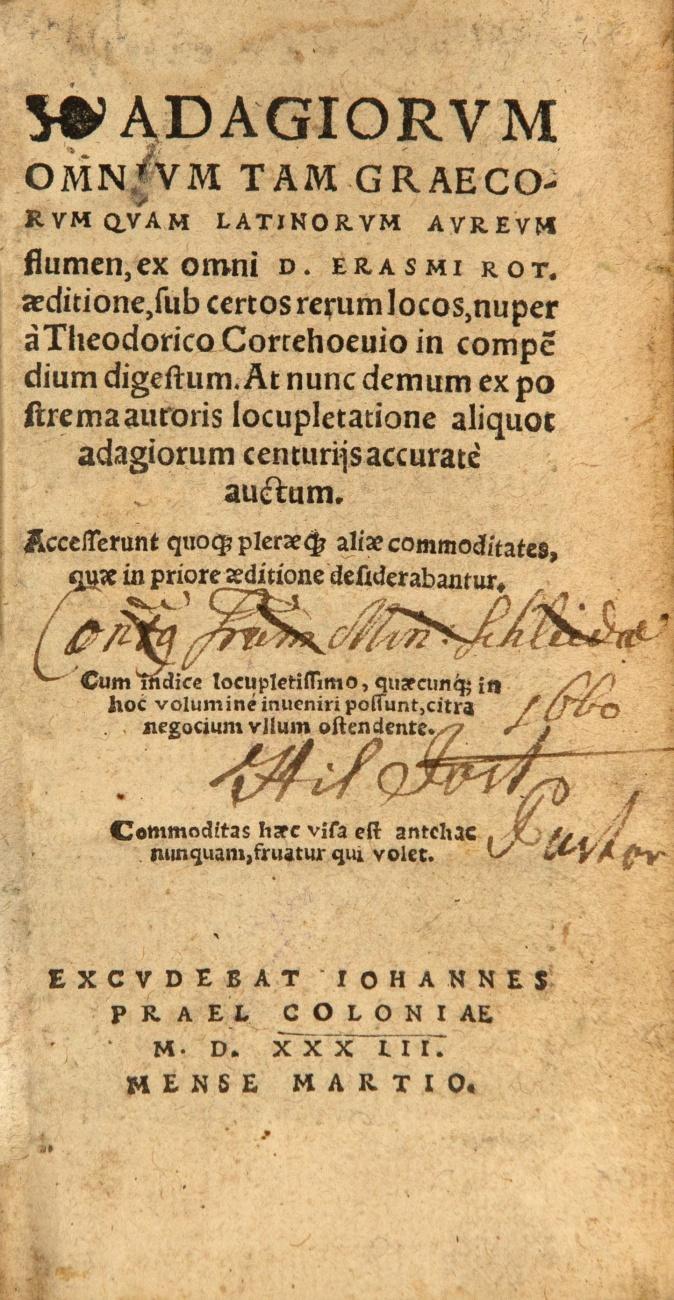 ADAGIORVM
OMNIVM TAM GRAECO-
RVM QVAM LATINORVM AVREVM
flumen, ex omni D. ERASMI ROT.
æditione, sub certos rerum locos, nuper
à Theodorico Cortehoeuio in compẽ
dium digestum. At nunc demum ex po
strema autoris locupletatione aliquot
adagiorum centurijs accuratè
auctum.
Accesserunt quoqꝫ pleræqꝫ aliæ commoditates,
quæ in priore æditione desiderabantur.
Contus frum Min: Schleidæ
Cum indice locupletissimo, quæcunqꝫ in
hoc volumine inueniri possunt, citra
negocium vllum ostendente.
1660
Hil Jost
Pastor
Commoditas hæc visa est antehac
nunquam, fruatur qui volet.
EXCVDEBAT IOHANNES
PRAEL COLONIAE
M. D. XXXIII.
MENSE MARTIO.